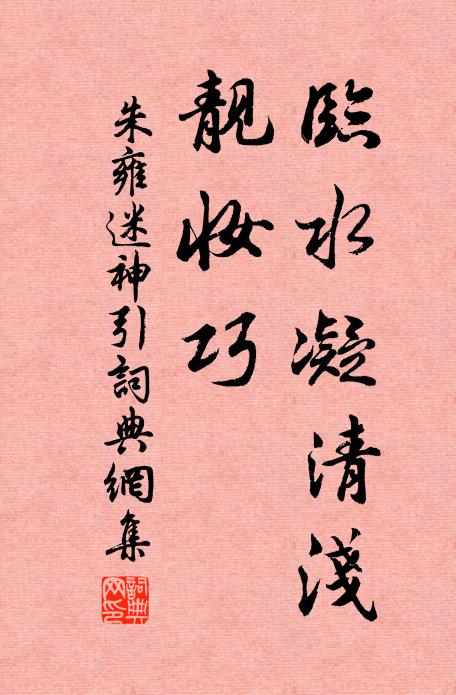 臨水凝清淺
靚妝巧
朱雍迷神引詞典網集
詞典网印